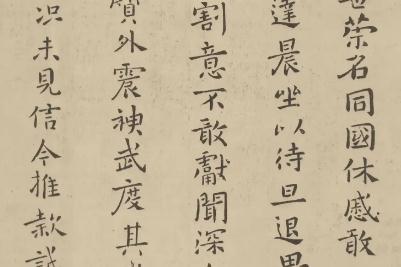 世榮名同國休慼敢
達晨坐以待旦退思
割意不敢獻聞深
質外震神武度其
況未見信今推款誠